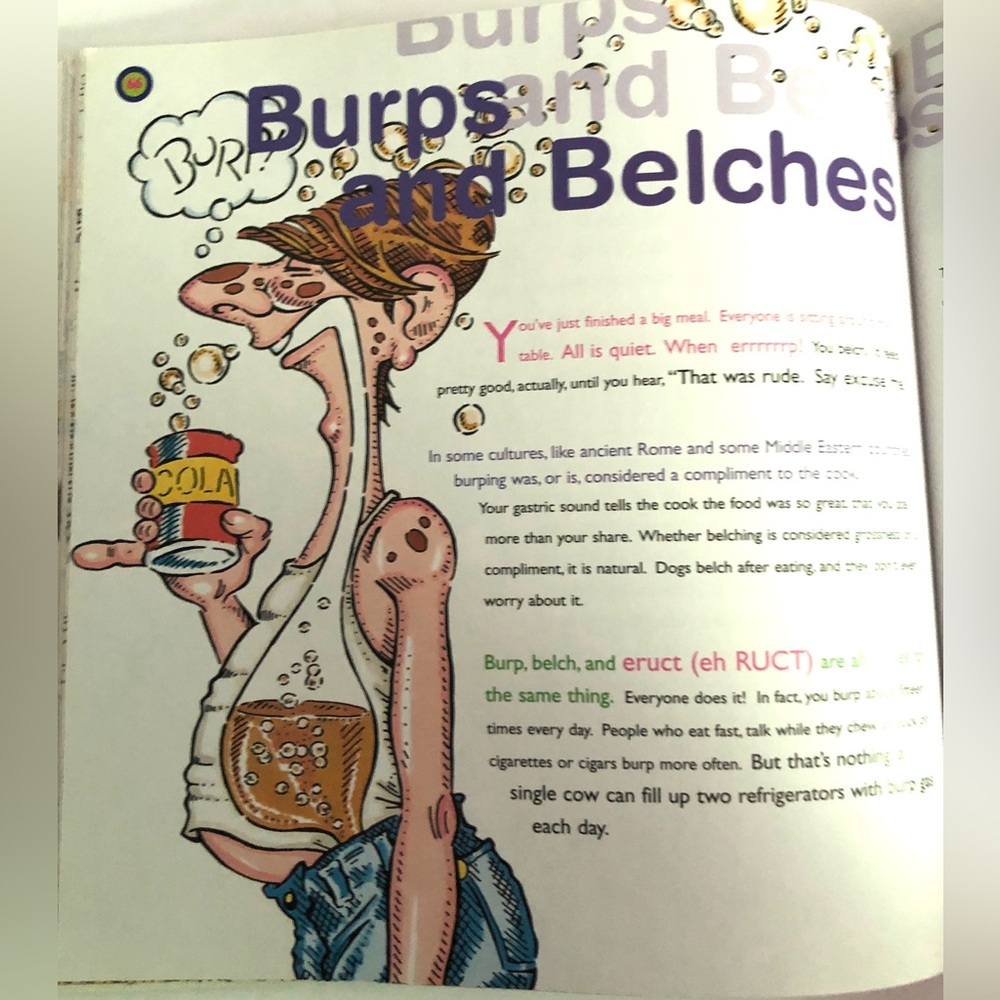 66
Burps
and Be
Burps
and Belches
BURP!
COLA
You've just finished a big meal. Everyone is sitting around
table. All is quiet. When errrrrrp! You
pretty good, actually, until you hear, "That was rude. Say excuse me
In some cultures, like ancient Rome and some Middle Eastern countries,
burping was, or is, considered a compliment to the cook.
Your gastric sound tells the cook the food was so great that you ate
more than your share. Whether belching is considered grossness or a
compliment, it is natural. Dogs belch after eating, and they don't ever
worry about it.
Burp, belch, and eruct (eh RUCT) are
the same thing. Everyone does it! In fact, you burp
times every day. People who eat fast, talk while they chew
cigarettes or cigars burp more often. But that's nothing
single cow can fill up two refrigerators with burp gas
each day.